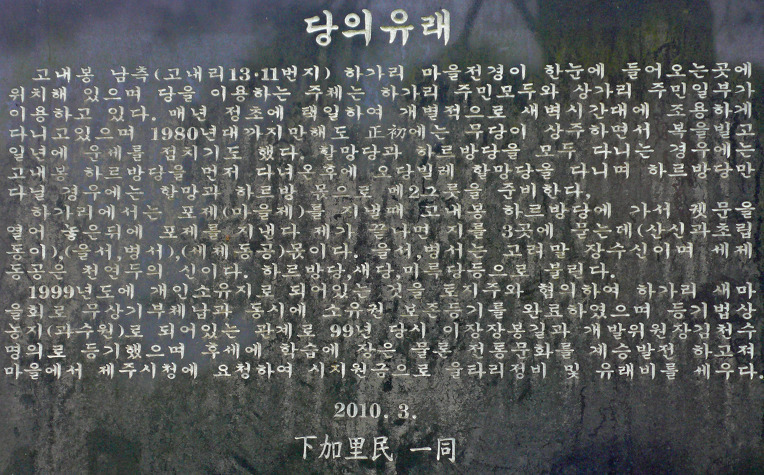 당의유래
고내봉 남측(고내리13·11번지) 하가리 마을전경이 한눈에 들어오는곳에
위치해 있으며 당을 이용하는 주체는 하가리 주민모두와 상가리 주민일부가
이용하고 있다. 매년 정초에 택일하여 개별적으로 새벽시간대에 조용하게
다니고있으며 1980년대까지만해도 正初에는 무당이 상주하면서 복을빌고
일년에 운세를 점치기도 했다. 할망당과 하르방당을 모두 다니는 경우에는
고내봉 하르방당을 먼저 다녀온후에 오당빌레 할망당을 다니며 하르방당만
다닐 경우에는 할망과 하르방 몫으로 메2그릇을 준비한다.
하가리에서는 포제(마을제)를 지낼때 고내봉 하르방당에 가서 祝문을
열어 놓은뒤에 포제를 지낸다 제기 끝나면 지를 3곳에 묻는데(산신과초립
동이),(을서,병서),(세제동공)몫이다. 을서,병서는 고려말 장수신이며 세제
동공은 천연두의 신이다. 하르방당,새당,미륵당등으로 불린다.
1999년도에 개인소유지로 되어있는 것을 토지주와 협의하여 하가리 새마
을회로 무상기부체납과 동시에 소유권 보존등기를 완료하였으며 등기법상
농지(과수원)로 되어있는 관계로 99년 당시 이장장봉길과 개발위원장김천수
명의로 등기했으며 후세에 학습에 장은 물론 전통문화를 계승발전 하고져
마을에서 제주시청에 요청하여 시지원금으로 울타리정비 및 유래비를 세우다.
2010. 3.
下加里民 一同